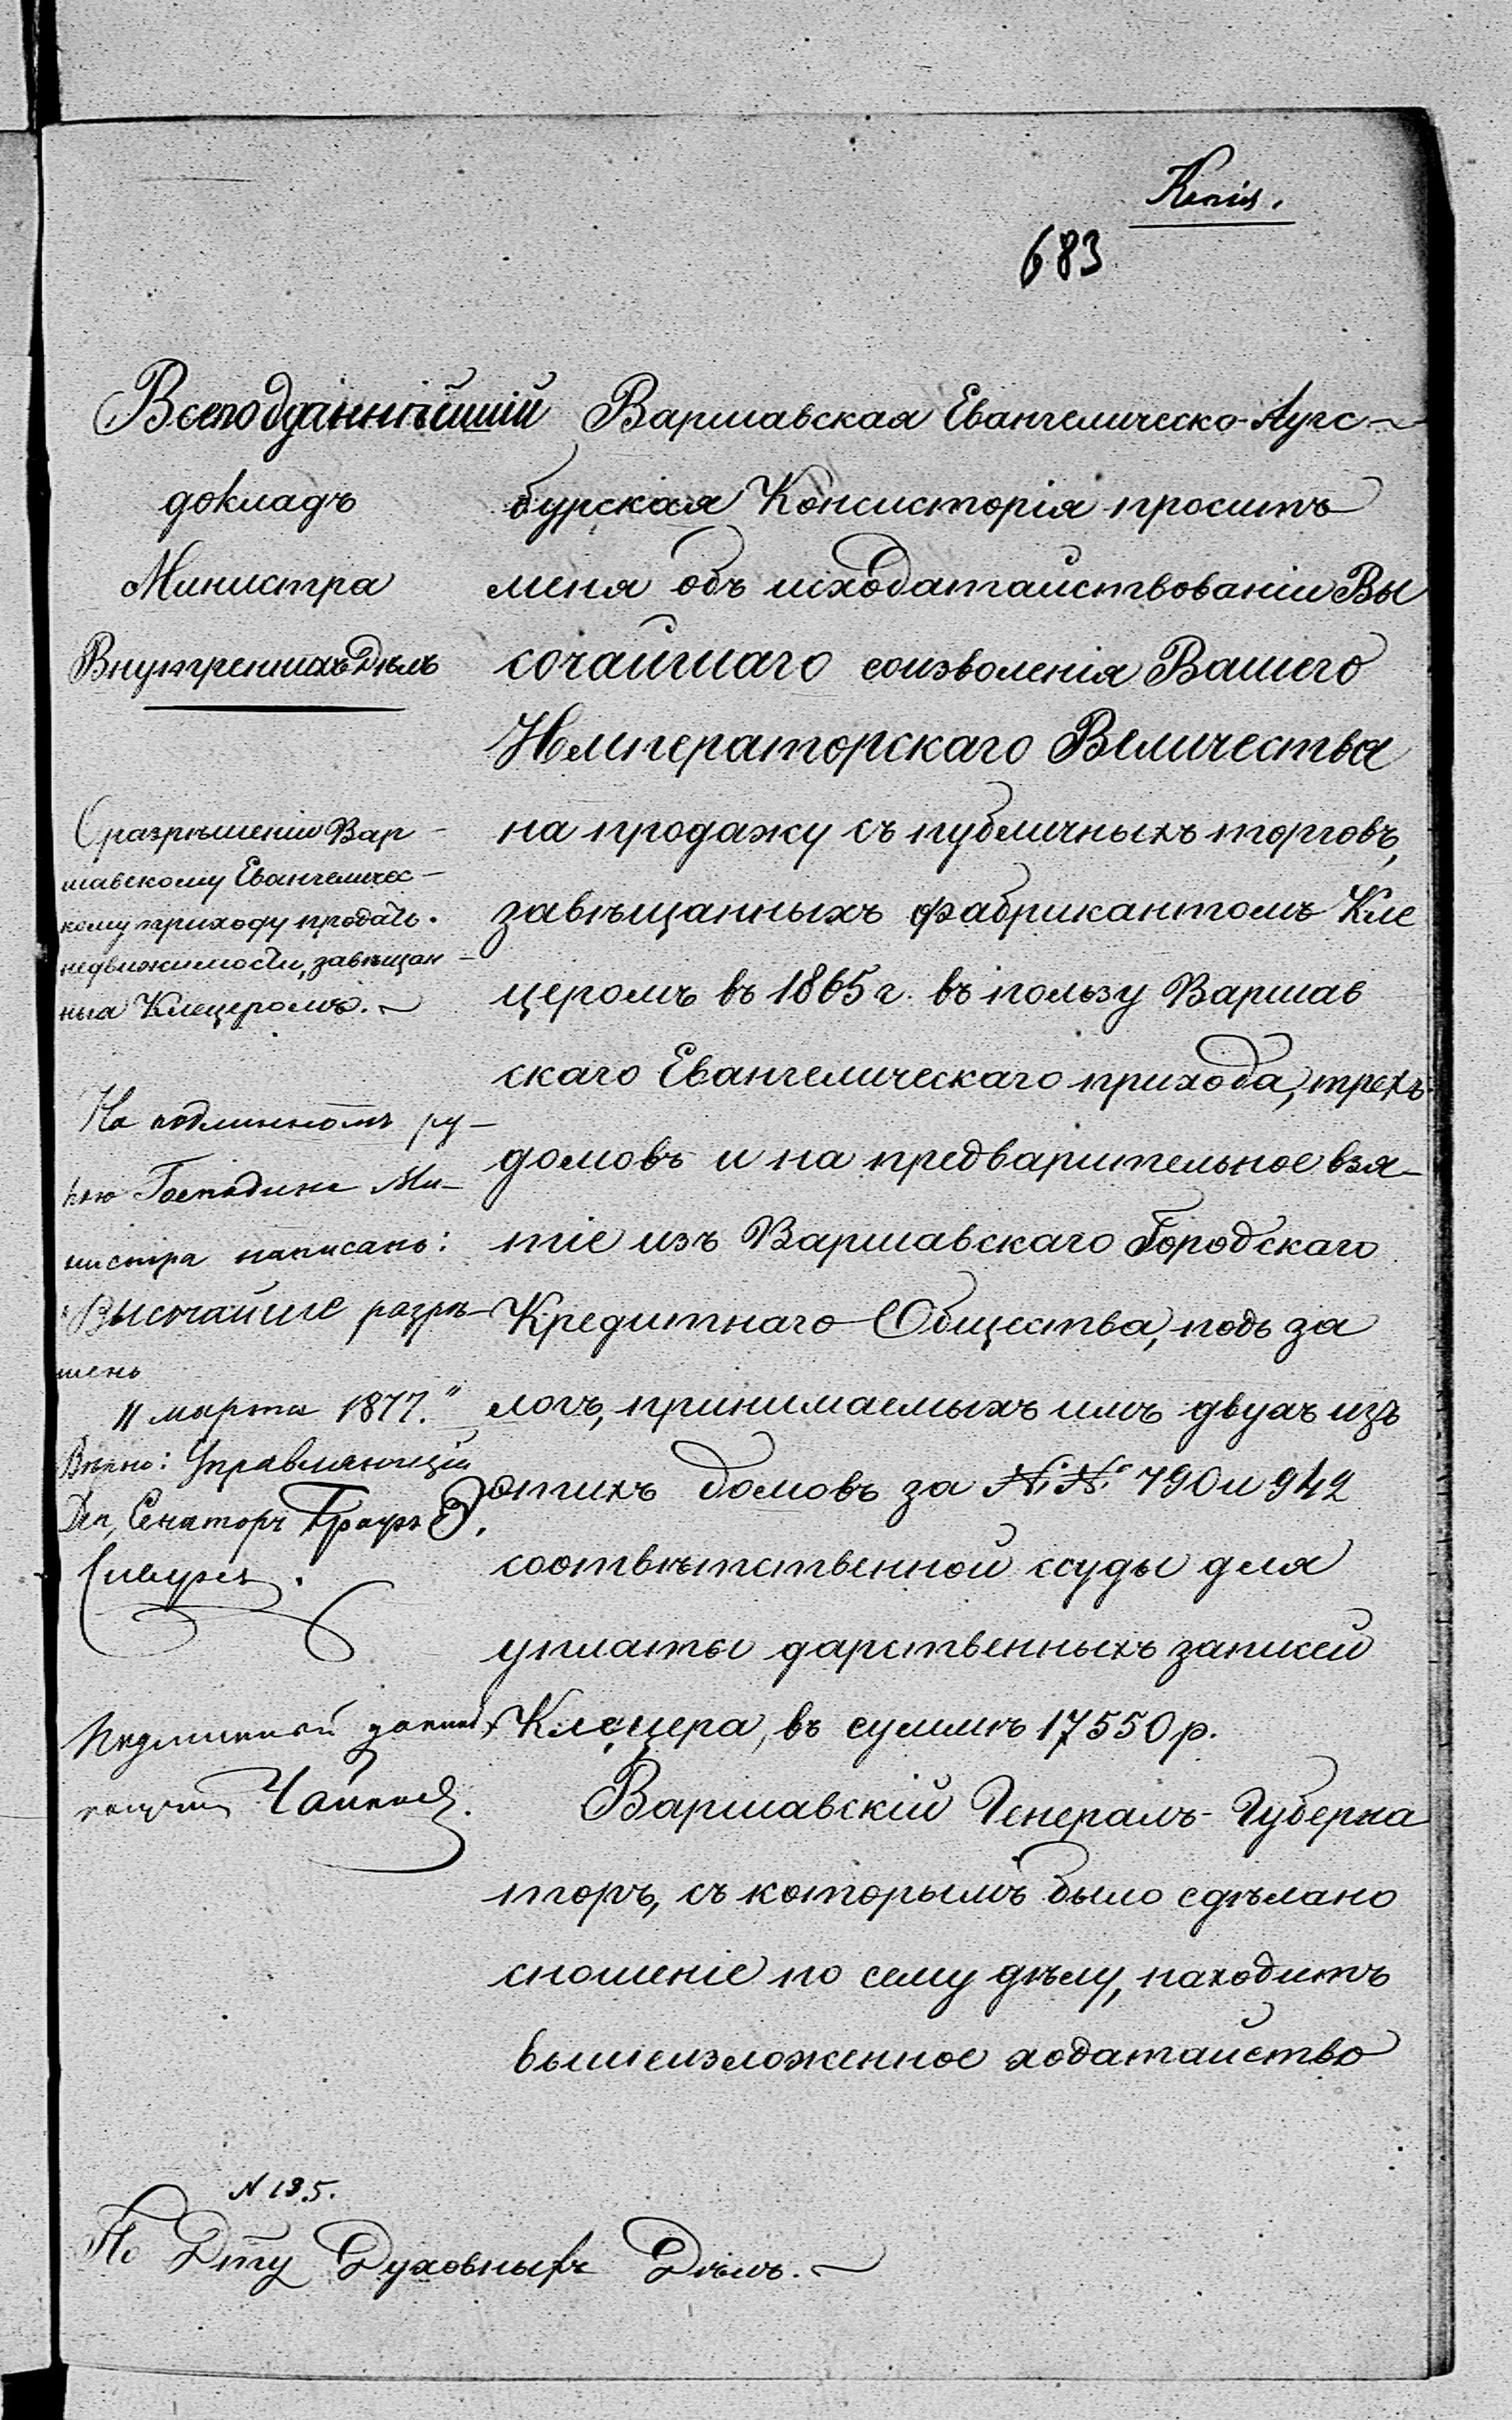 Копія.
683
Всеподданнѣйшій
докладъ
Министра
Внутреннихъ Дѣлъ
О разрѣшеніи Вар-
шавскому Евангеличес-
кому приходу продать
недвижимости, завѣщан-
ныя Клецеромъ.
На подлинномъ ру-
кою Господина Ми-
нистра написано:
"Высочайше разрѣ-
шено
11 марта 1877."
Вѣрно: Управляющій
Деп. Сенаторъ Графъ Э.
Сиверсъ.
Подлинный докладъ
получилъ
N 135.
По Дту Духовныхъ Дѣлъ.
Варшавская Евангелическо-Аугс-
бургская Консисторія проситъ
меня объ исходатайствованіи Вы
сочайшаго соизволенія Вашего
Императорскаго Величества
на продажу съ публичныхъ торговъ,
завѣщанныхъ фабрикантомъ Кле
церомъ въ 1865 г. въ пользу Варшав
скаго Евангелическаго прихода, трехъ
домовъ и на предварительное взя-
тіе изъ Варшавскаго Городскаго
Кредитнаго Общества, подъ за
логъ, принимаемыхъ имъ двухъ изъ
этихъ домовъ за №№ 790 и 942
соотвѣтственной ссуды для
уплаты дарственныхъ записей
Клецера, въ суммѣ 17550 р.
Варшавскій Генералъ-Губерна
торъ, съ которымъ было сдѣлано
сношеніе по сему дѣлу, находитъ
вышеизложенное ходатайство